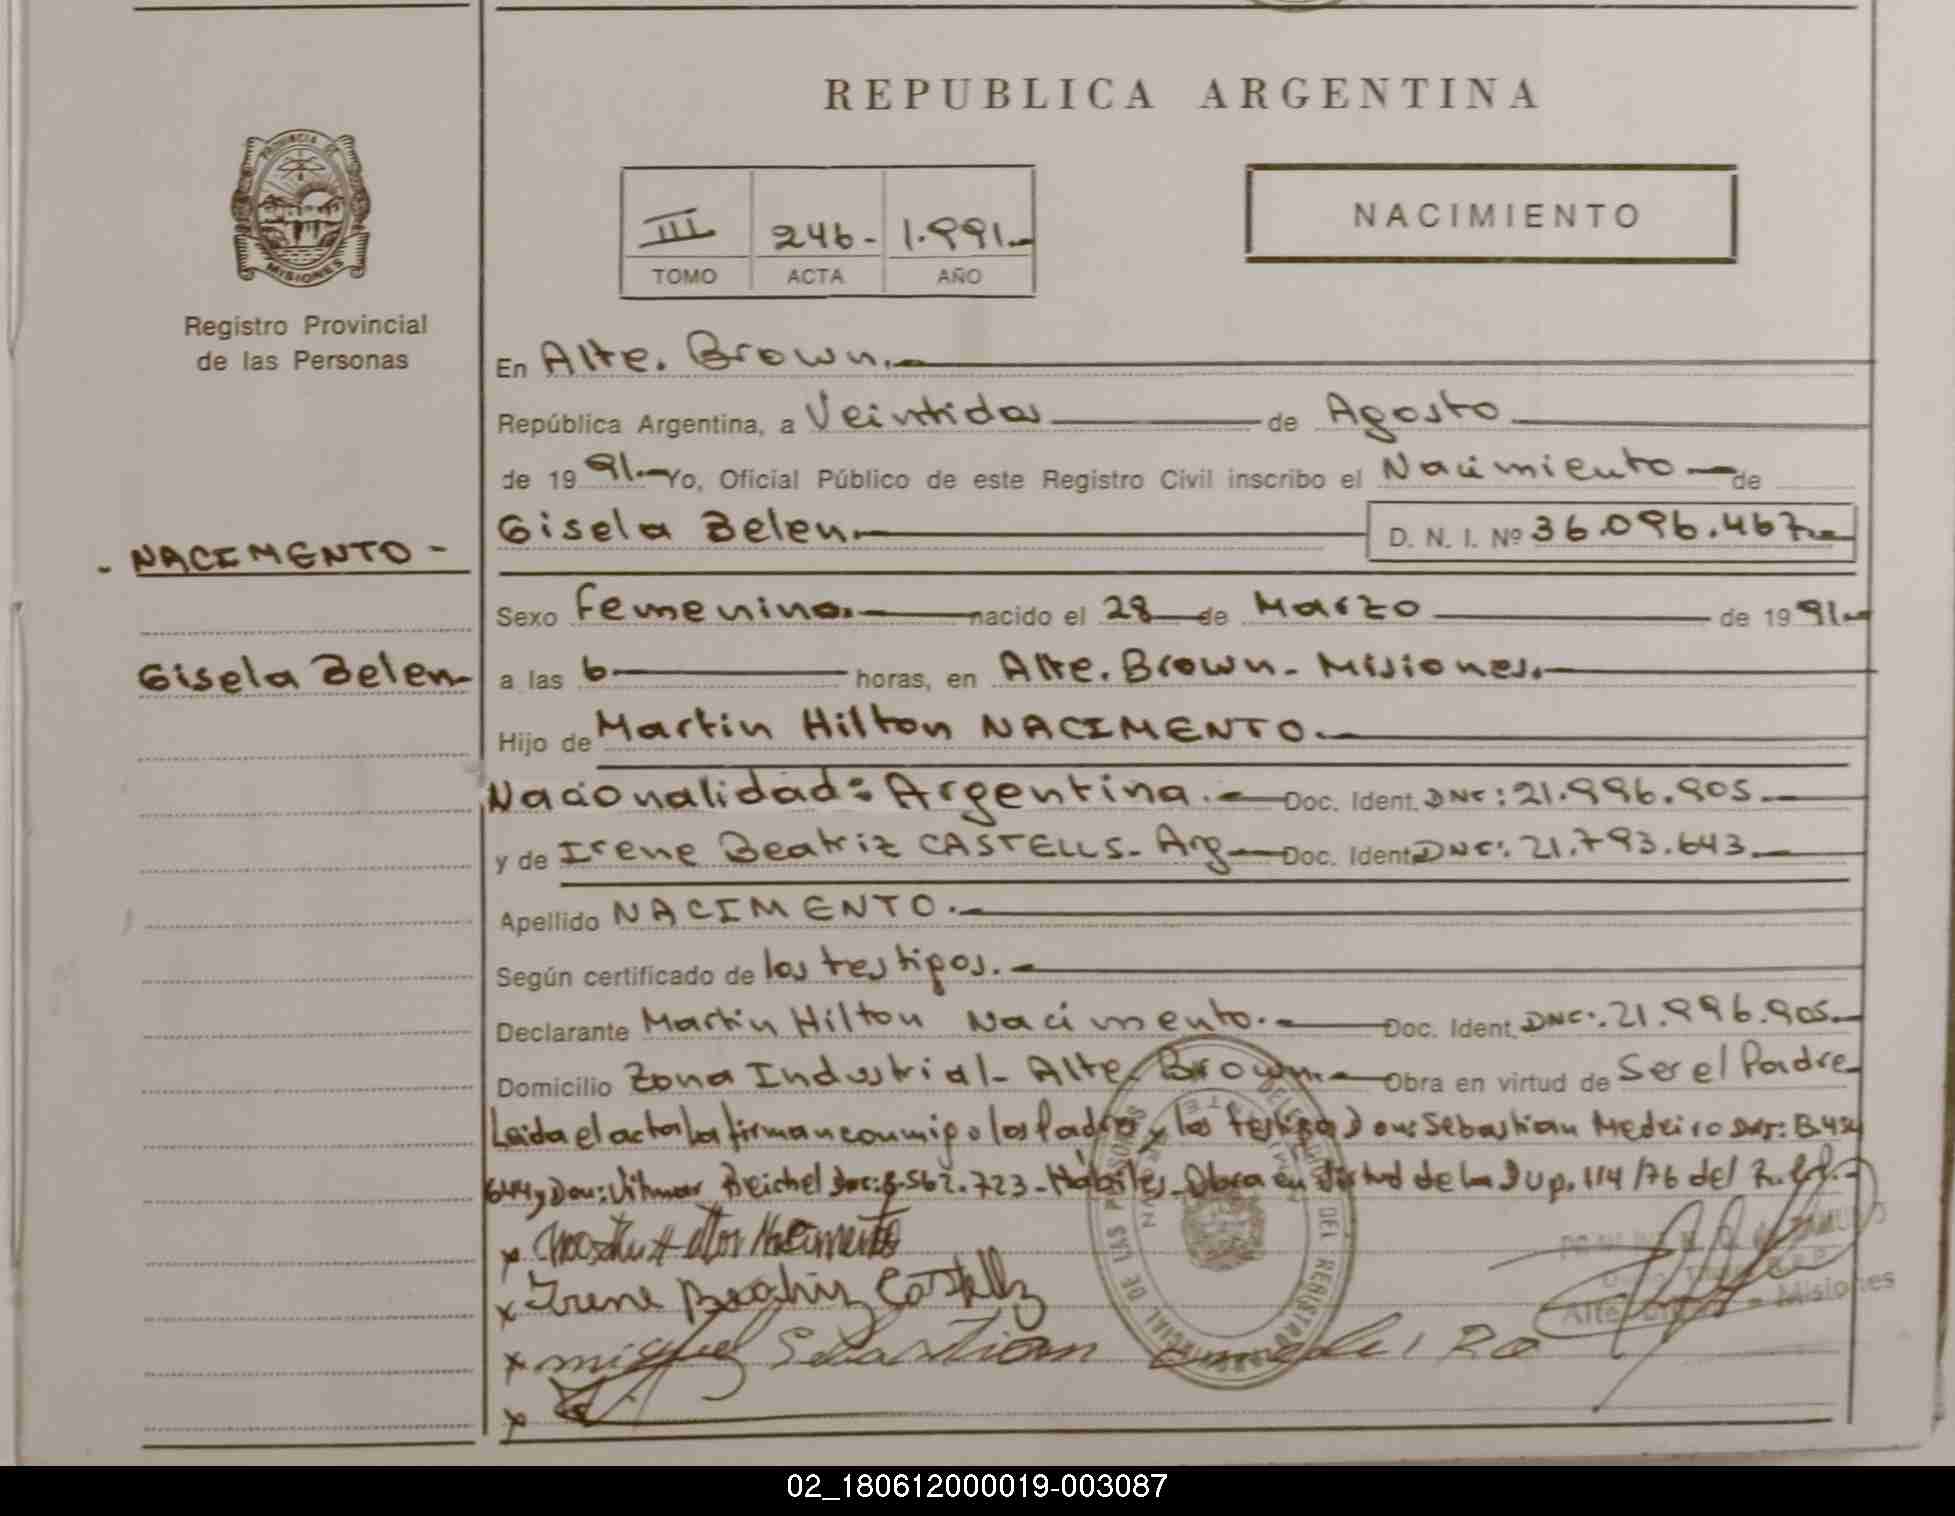 REPUBLICA ARGENTINA
PROVINCIA DE
MISIONES
Registro Provincial
de las Personas
III 246- 1.991.-
TOMO ACTA AÑO
NACIMIENTO
En Alte. Brown.-
República Argentina, a Veintidos de Agosto
de 19 91.- Yo, Oficial Público de este Registro Civil inscribo el Nacimiento - de
Gisela Belen.- D. N. I. Nº 36.096.467.-
- NACIMENTO -
Sexo Femenino.- nacido el 28 de Marzo de 19 91.-
Gisela Belen-
a las 6 horas, en Alte. Brown - Misiones.-
Hijo de Martin Hilton NACIMENTO.-
Nacionalidad: Argentina.- Doc. Ident. DNI: 21.996.905.-
y de Irene Beatriz CASTELLS- Arg- Doc. Ident. DNI: 21.793.643.-
Apellido NACIMENTO.-
Según certificado de los testigos.-
Declarante Martin Hilton Nacimento.- Doc. Ident. DNI: 21.996.905.-
Domicilio Zona Industrial- Alte. Brown.- Obra en virtud de Ser el Padre-
Leida el acta la firman conmigo los Padres y los testigos Don: Sebastian Medeiro
y Don: Vilmar Reichel 562.723 - Hábiles - Obra en virtud de la 114/76 del
x Nacimento
x Irene Beatriz Castells
x miguel Sebastian
x
DEL REGISTRO PROVINCIAL DE LAS PERSONAS
Misiones
02_180612000019-003087